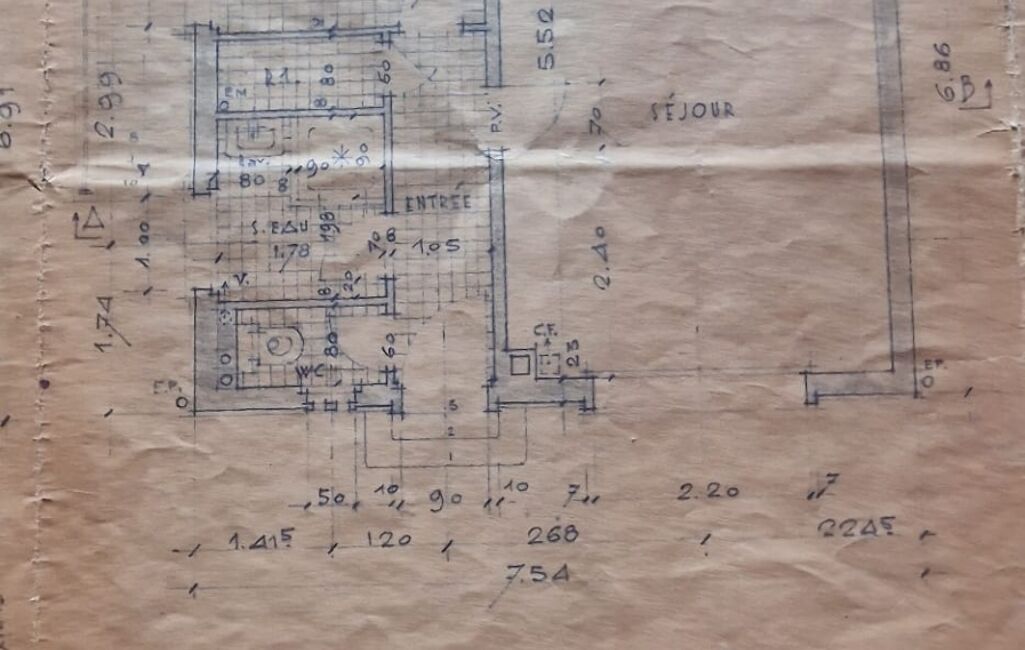 5.52
6.86
B
6.91
2.99
R1.
80
60
8
P.V.
70
SÉJOUR
80
8
90
90
ENTRÉE
A
1.00
S.EAU
1.78
198
70
8
1.05
2.40
V.
8
20
1.74
80
60
WC
C.F.
23
E.P.
3
2
1
50
10
90
10
7
2.20
7
1.41⁵
120
268
224⁵
7.54